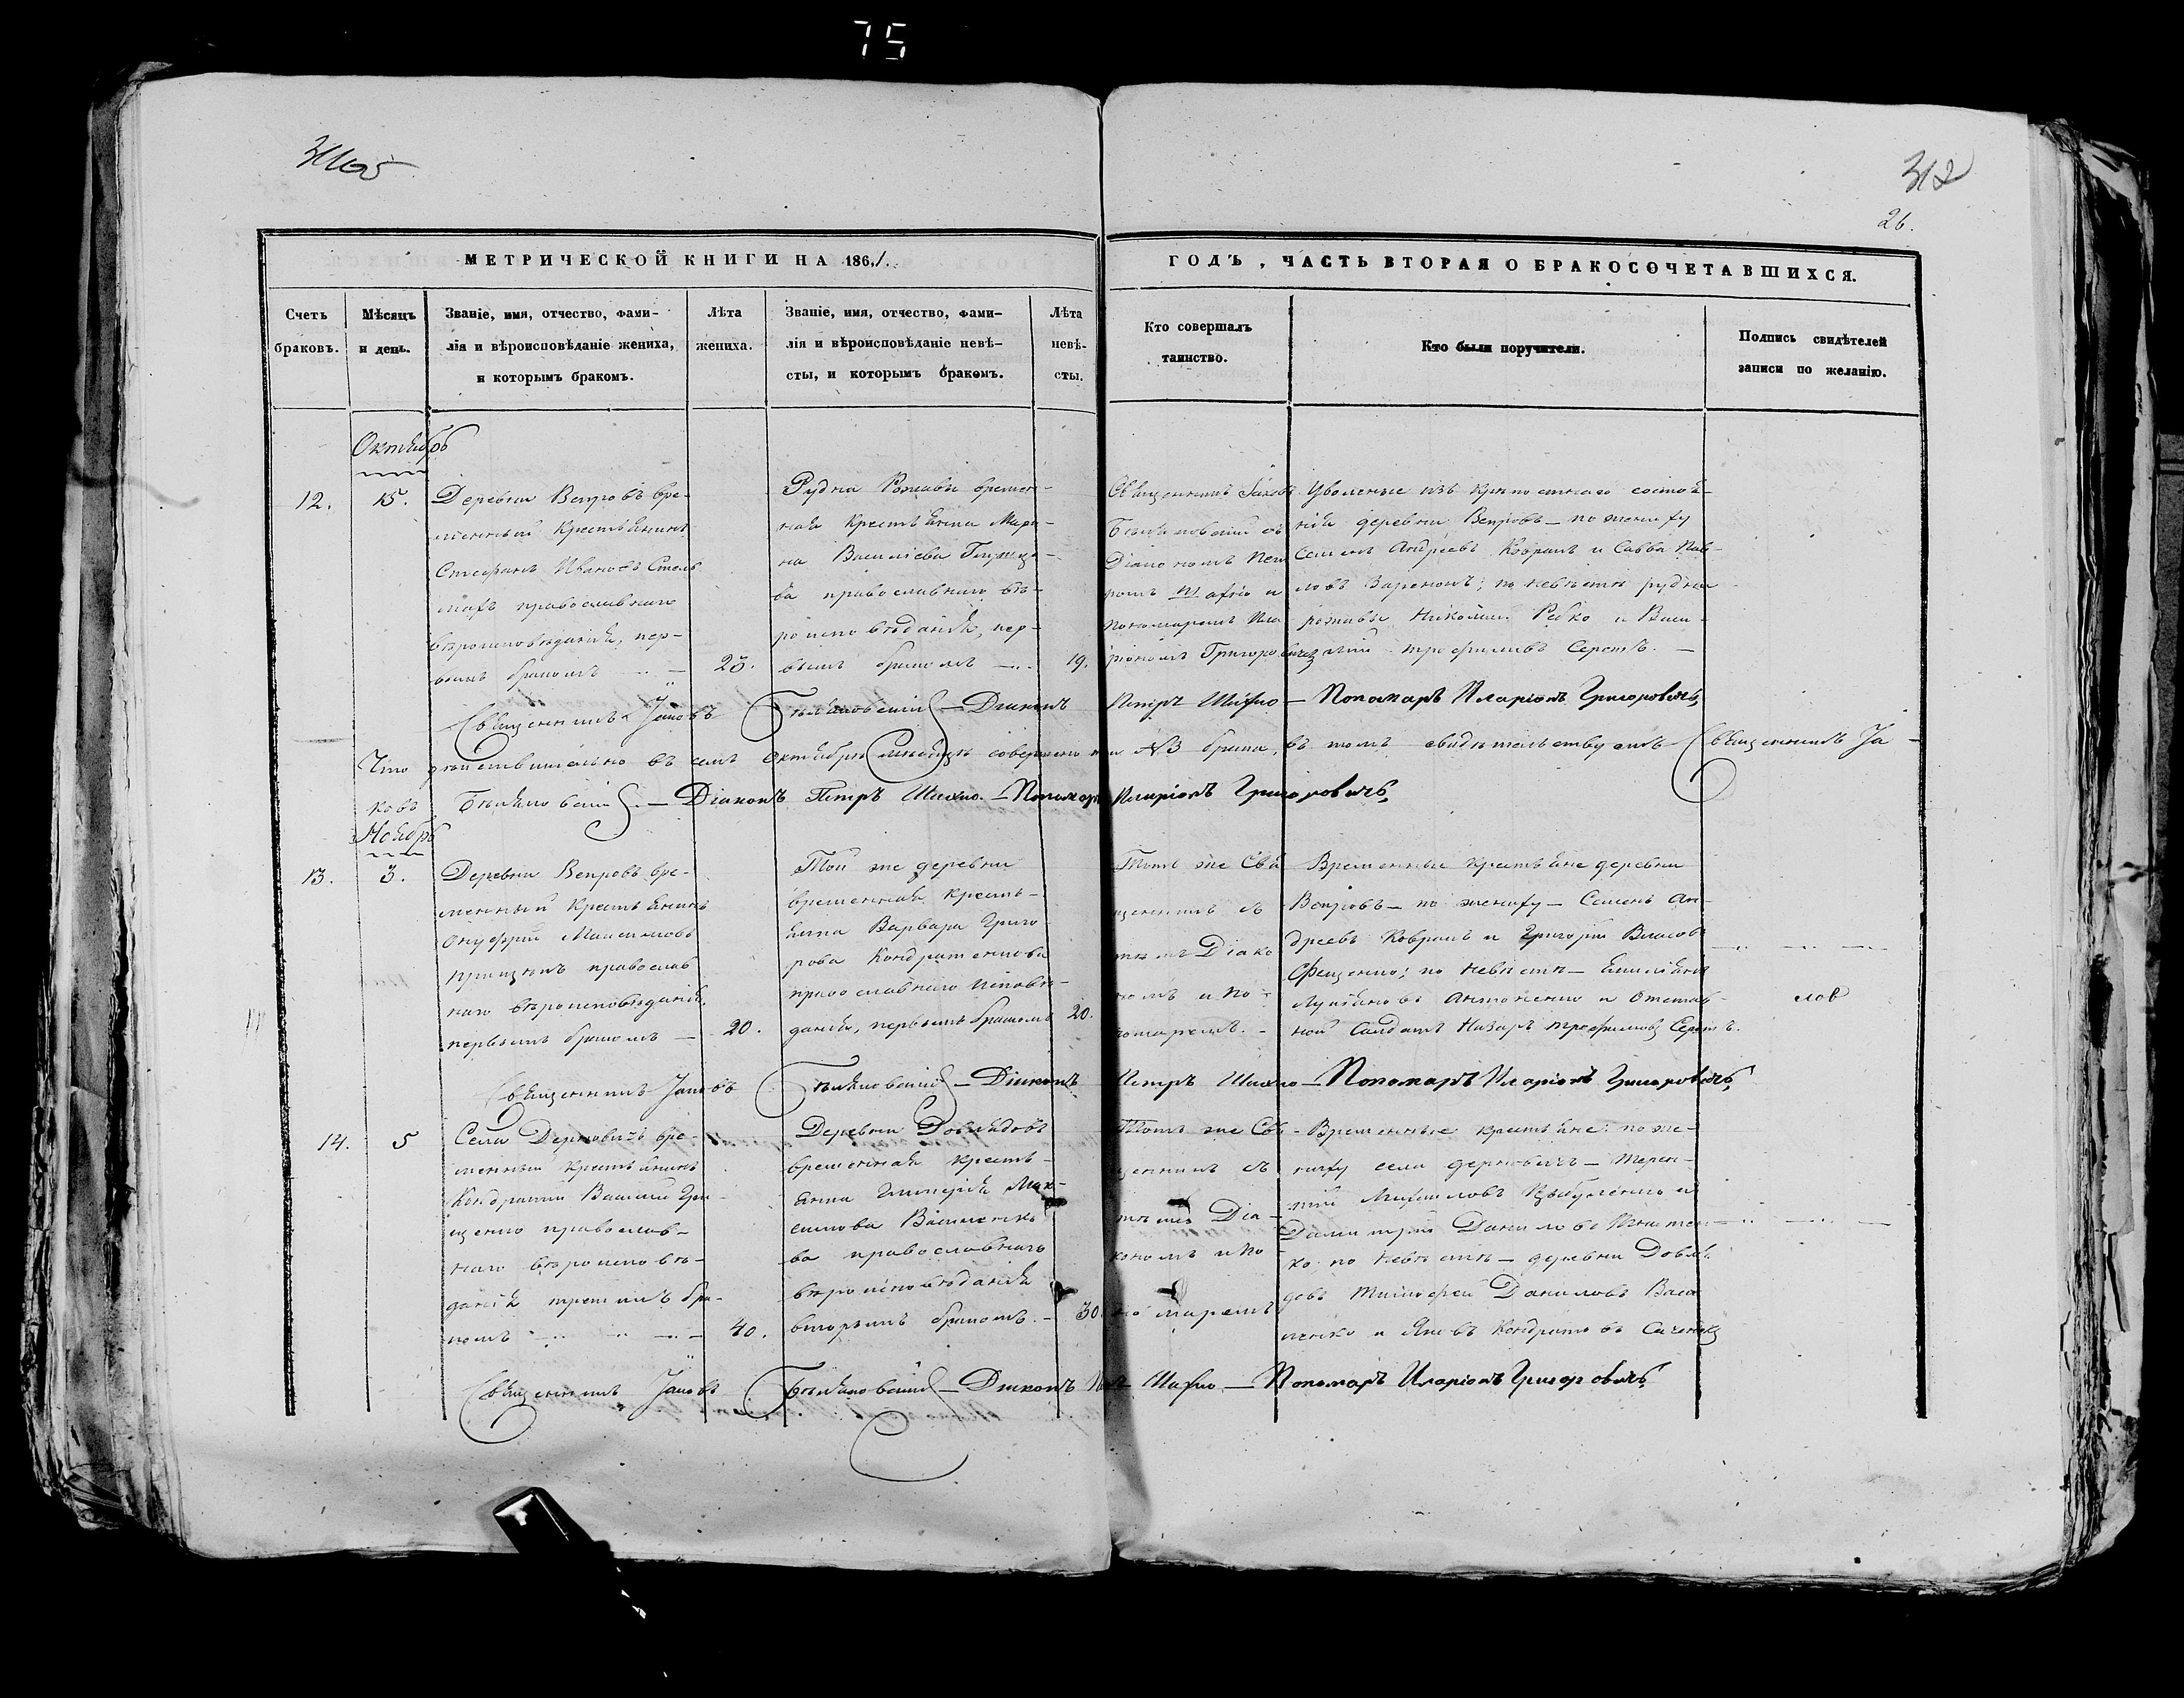 75
312
26.
МЕТРИЧЕСКОЙ КНИГИ НА 1861.
ГОДЪ, ЧАСТЬ ВТОРАЯ О БРАКОСОЧЕТАВШИХСЯ.
Счетъ браковъ.
Мѣсяцъ и день.
Званіе, имя, отчество, фами-
лія и вѣроисповѣданіе жениха,
и которымъ бракомъ.
Лѣта
жениха.
Званіе, имя, отчество, фами-
лія и вѣроисповѣданіе невѣ-
сты, и которымъ бракомъ.
Лѣта
невѣ-
сты.
Кто совершалъ
таинство.
Кто были поручители.
Подпись свидѣтелей
записи по желанію.
Октябрь
12.
15.
Деревни Вепровъ вре-
менный крестьянинъ
Стефанъ Ивановъ Стель
махъ православнаго
вѣроисповѣданія, пер-
вымъ бракомъ
23.
Рудни Рожавы времен-
ная крестьянка Мари-
на Василіева
ва православнаго вѣ-
роисповѣданія, пер-
вымъ бракомъ
19.
Священникъ Іаковъ
съ
Діакономъ Пет
ромъ Шахно и
пономаремъ Ила
ріономъ Григоровичемъ
Уволенные изъ крѣпостнаго состоя-
нія деревни Вепровъ – по жениху
Семенъ Андреевъ Ковранъ и Савва Пав-
ловъ; по невѣстѣ рудни
рожавы Николай Редко и Васи-
лій Трофимовъ
Священникъ Іаковъ – Діаконъ Петръ Шахно – Пономарь Иларіонъ Григоровичъ
Что дѣйствительно въ семъ октябрѣ мѣсяцѣ совершено три №3 брака, въ томъ свидѣтельствуемъ Священникъ Іа-
ковъ – Діаконъ Петръ Шахно. – Пономарь Иларіонъ Григоровичъ
Ноябрь
13.
3.
Деревни Вепровъ вре-
менный крестьянинъ
Онуфрій Максимовъ
православ
наго вѣроисповѣданія,
первымъ бракомъ
20.
Той же деревни
временная кресть-
янка Варвара Григо-
рова Кондратенкова
православнаго исповѣ-
данія, первымъ бракомъ
20.
Тотъ же Свя
щенникъ съ
тѣмъ Діако
номъ и по-
номаремъ. –
Временные крестьяне деревни
Вепровъ – по жениху – Семенъ Ан-
дреевъ Ковранъ и Григорій Власовъ
; по невѣстѣ – Емиліянъ
Лукіяновъ Антоненко и отстав-
ной Солдатъ Назаръ Трофимовъ
Священникъ Іаковъ – Діаконъ Петръ Шахно – Пономарь Иларіонъ Григоровичъ
14.
5
Села Дерновичъ вре-
менный крестьянинъ
Кондратій Василій Гри
щенко православ-
наго вѣроисповѣ-
данія третимъ бра-
комъ
40.
Деревни Довлядовъ
временная кресть-
янка Гликерія Мак-
симова Василенко
ва православнаго
вѣроисповѣданія
вторымъ бракомъ. –
30.
Тотъ же Свя-
щенникъ съ
тѣмъ Діа-
кономъ и по
номаремъ
Временные крестьяне: по же-
ниху села Дерновичъ – Терен-
тій Михайловъ Цыбуленко и
Димитрій Даниловъ
ко по невѣстѣ – деревни Довля
довъ Тимофей Даниловъ Васи
ленко и Яковъ Кондратовъ
Священникъ Іаковъ – Діаконъ Шахно. – Пономарь Иларіонъ Григоровичъ